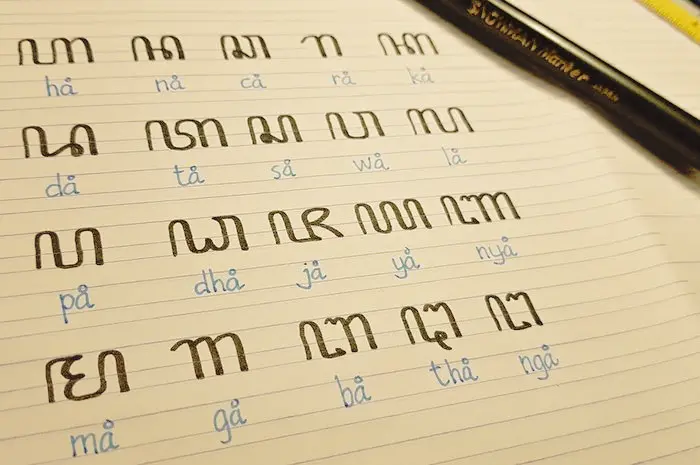 ꦲ ꦤ ꦕ ꦫ ꦏ
hå nå cå rå kå
ꦢ ꦠ ꦱ ꦮ ꦭ
då tå så wå lå
ꦥ ꦝ ꦗ ꦪ ꦚ
på dhå jå yå nyå
ꦩ ꦒ ꦧ ꦛ ꦔ
må gå bå thå ngå
SNOWMAN Marker